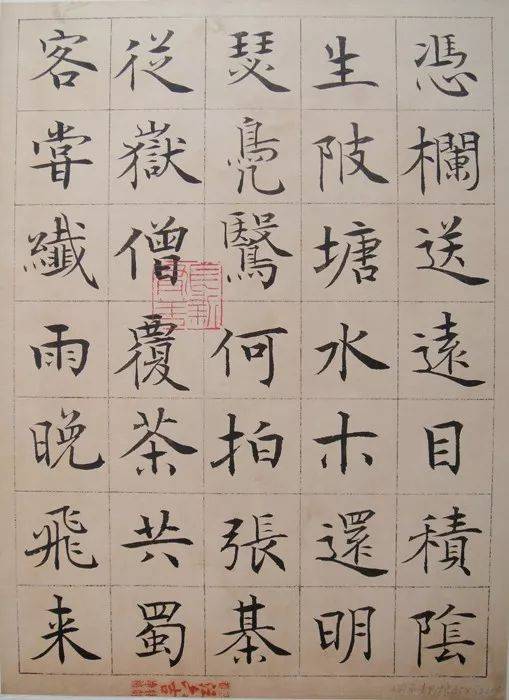 憑欄送遠目積陰
生陂塘水木還明
瑟鳧鷖何拍張棊
從嶽僧覆茶共蜀
客甞纖雨晚飛来